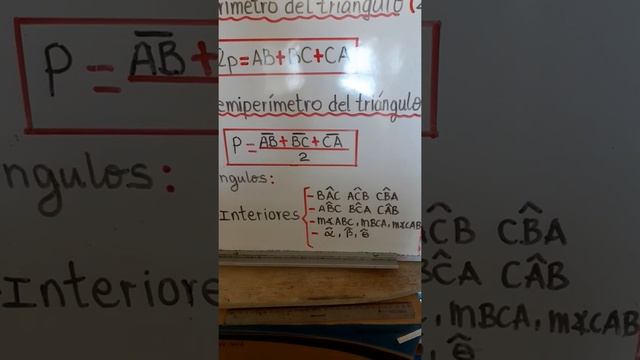 Perímetro del triángulo
2p=AB+BC+CA
Semiperímetro del triángulo
P = A̅B̅ + B̅C̅ + C̅A̅
2
Ángulos:
Interiores
- BÂC AĈB CB̂A
- AB̂C BĈA CÂB
- m∡ABC, mBCA, m∡CAB
- α̂, β̂, θ̂